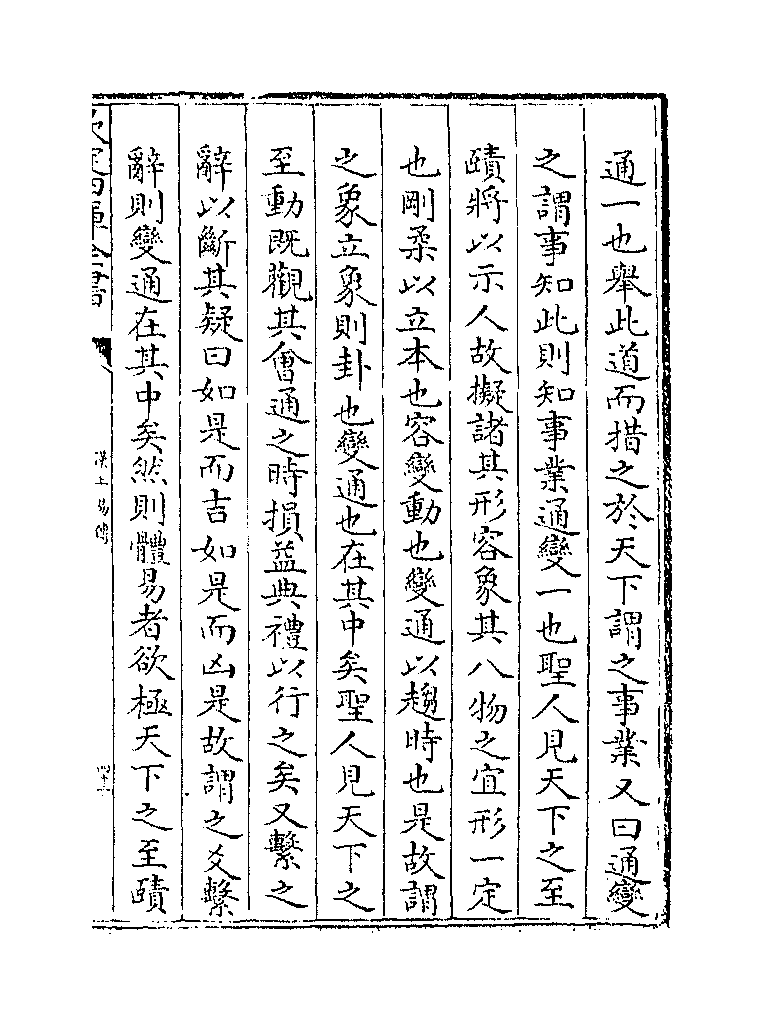 通一也舉此道而措之於天下謂之事業又曰通變
之謂事知此則知事業通變一也聖人見天下之至
賾將以示人故擬諸其形容象其八物之宜形一定
也剛柔以立本也容變動也變通以趨時也是故謂
之象立象則卦也變通也在其中矣聖人見天下之
至動既觀其會通之時損益典禮以行之矣又繫之
辭以斷其疑曰如是而吉如是而凶是故謂之爻繫
辭則變通在其中矣然則體易者欲極天下之至賾
欽定四庫全書
漢上易傳
四十二